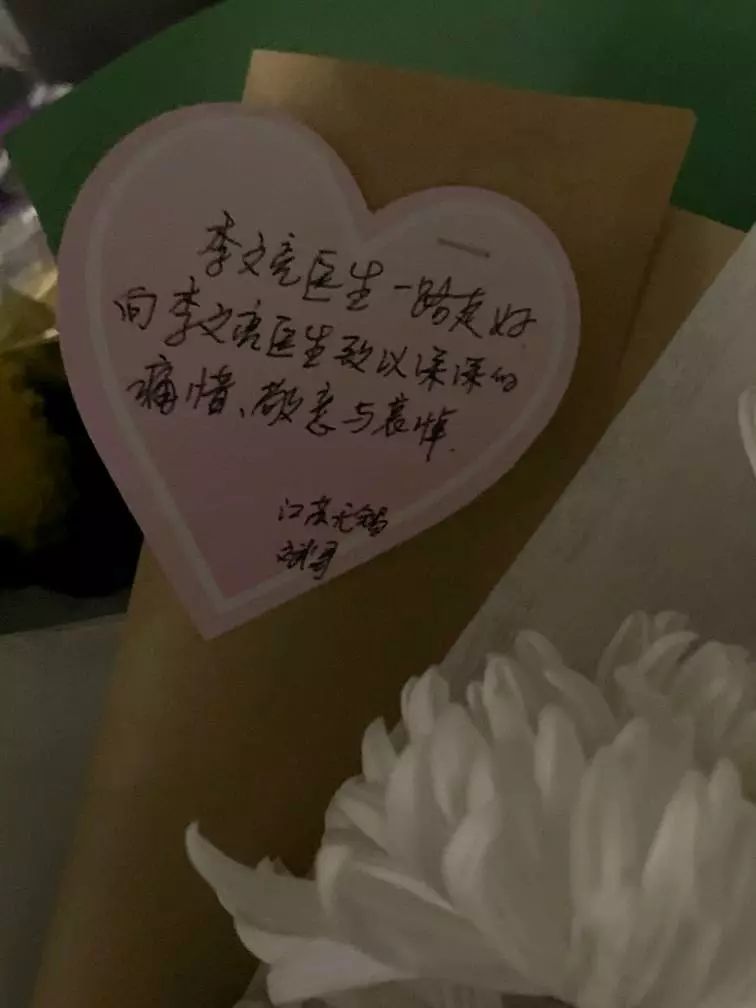 李文亮医生一路走好
向李文亮医生致以深深的
痛惜、敬意与哀悼.
江苏无锡
刘哥